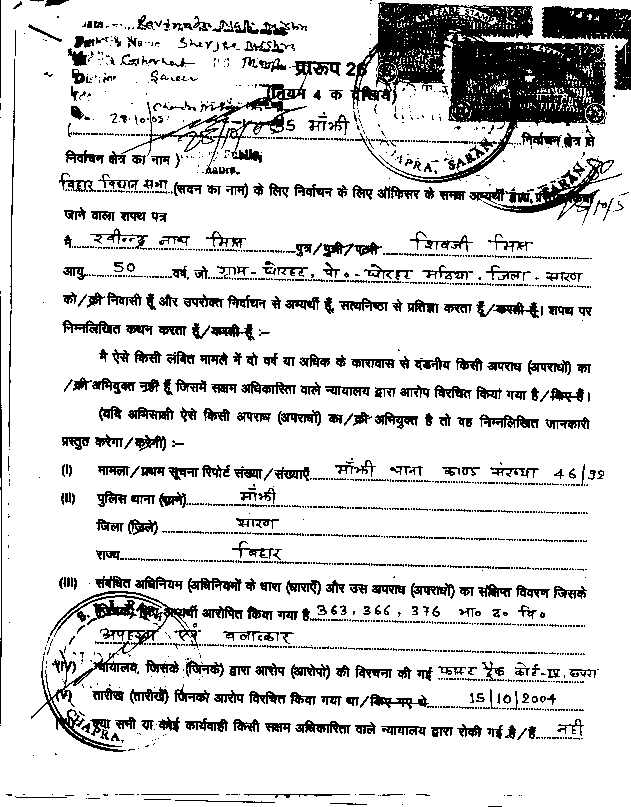 Name Ravindra Nath Mishra
Name Shivjee Mishra
प्रारूप 26
(नियम 4 क देखिये)
28.10.05
35 माँझी
निर्वाचन क्षेत्र से
निर्वाचन क्षेत्र का नाम)
CHAPRA, SARAN
बिहार विधान सभा (सदन का नाम) के लिए निर्वाचन के लिए ऑफिसर के समक्ष अभ्यर्थी द्वारा प्रस्तुत किया
जाने वाला शपथ पत्र
मै रवीन्द्र नाथ मिश्र पुत्र/पुत्री/पत्नी शिवजी मिश्र
आयु 50 वर्ष, जो ग्राम-घोरहट, पो०-घोरहट मठिया, जिला-सारण
को/की निवासी हूँ और उपरोक्त निर्वाचन से अभ्यर्थी हूँ, सत्यनिष्ठा से प्रतिज्ञा करता हूँ/करती हूँ। शपथ पर
निम्नलिखित कथन करता हूँ/करती हूँ :–
मै ऐसे किसी लंबित मामले में दो वर्ष या अधिक के कारावास से दंडनीय किसी अपराध (अपराधों) का
/की अभियुक्त नहीं हूँ जिसमें सक्षम अधिकारिता वाले न्यायालय द्वारा आरोप विरचित किया गया है/किए हैं।
(यदि अभिसाक्षी ऐसे किसी अपराध (अपराधों) का/की अभियुक्त है तो वह निम्नलिखित जानकारी
प्रस्तुत करेगा/करेगी) :–
(I) मामला/प्रथम सूचना रिपोर्ट संख्या/संख्याएँ माँझी थाना काण्ड संख्या 46/92
(II) पुलिस थाना (थाने) माँझी
जिला (जिले) सारण
राज्य बिहार
(III) संबंधित अधिनियम (अधिनियमों के धारा (धाराएँ) और उस अपराध (अपराधों) का संक्षिप्त विवरण जिसके
(जिनके) लिए अभ्यर्थी आरोपित किया गया है 363, 366, 376 भा० द० वि०
अपहरण एवं बलात्कार
(IV) न्यायालय, जिसके (जिनके) द्वारा आरोप (आरोपो) की विरचना की गई फास्ट ट्रैक कोर्ट-IV, छपरा
(V) तारीख (तारीखें) जिनको आरोप विरचित किया गया था/किए गए थे 15/10/2004
क्या सभी या कोई कार्यवाही किसी सक्षम अधिकारिता वाले न्यायालय द्वारा रोकी गई है/हैं नहीं
CHAPRA.